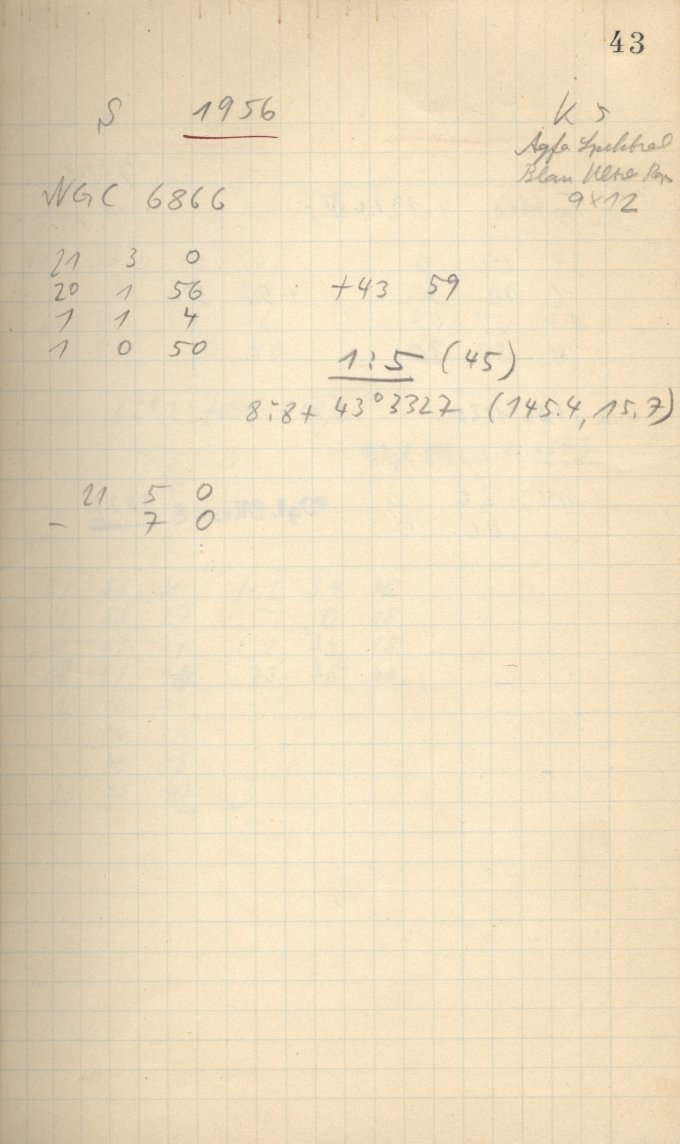 43
S 1956 K 5
Agfa Spektral
Blau Ultra Rap
9x12
NGC 6866
21 3 0
20 1 56 +43 59
1 1 4
1 0 50 1:5 (45)
8:8+ 43°3327 (145.4, 15.7)
21 5 0
- 7 0